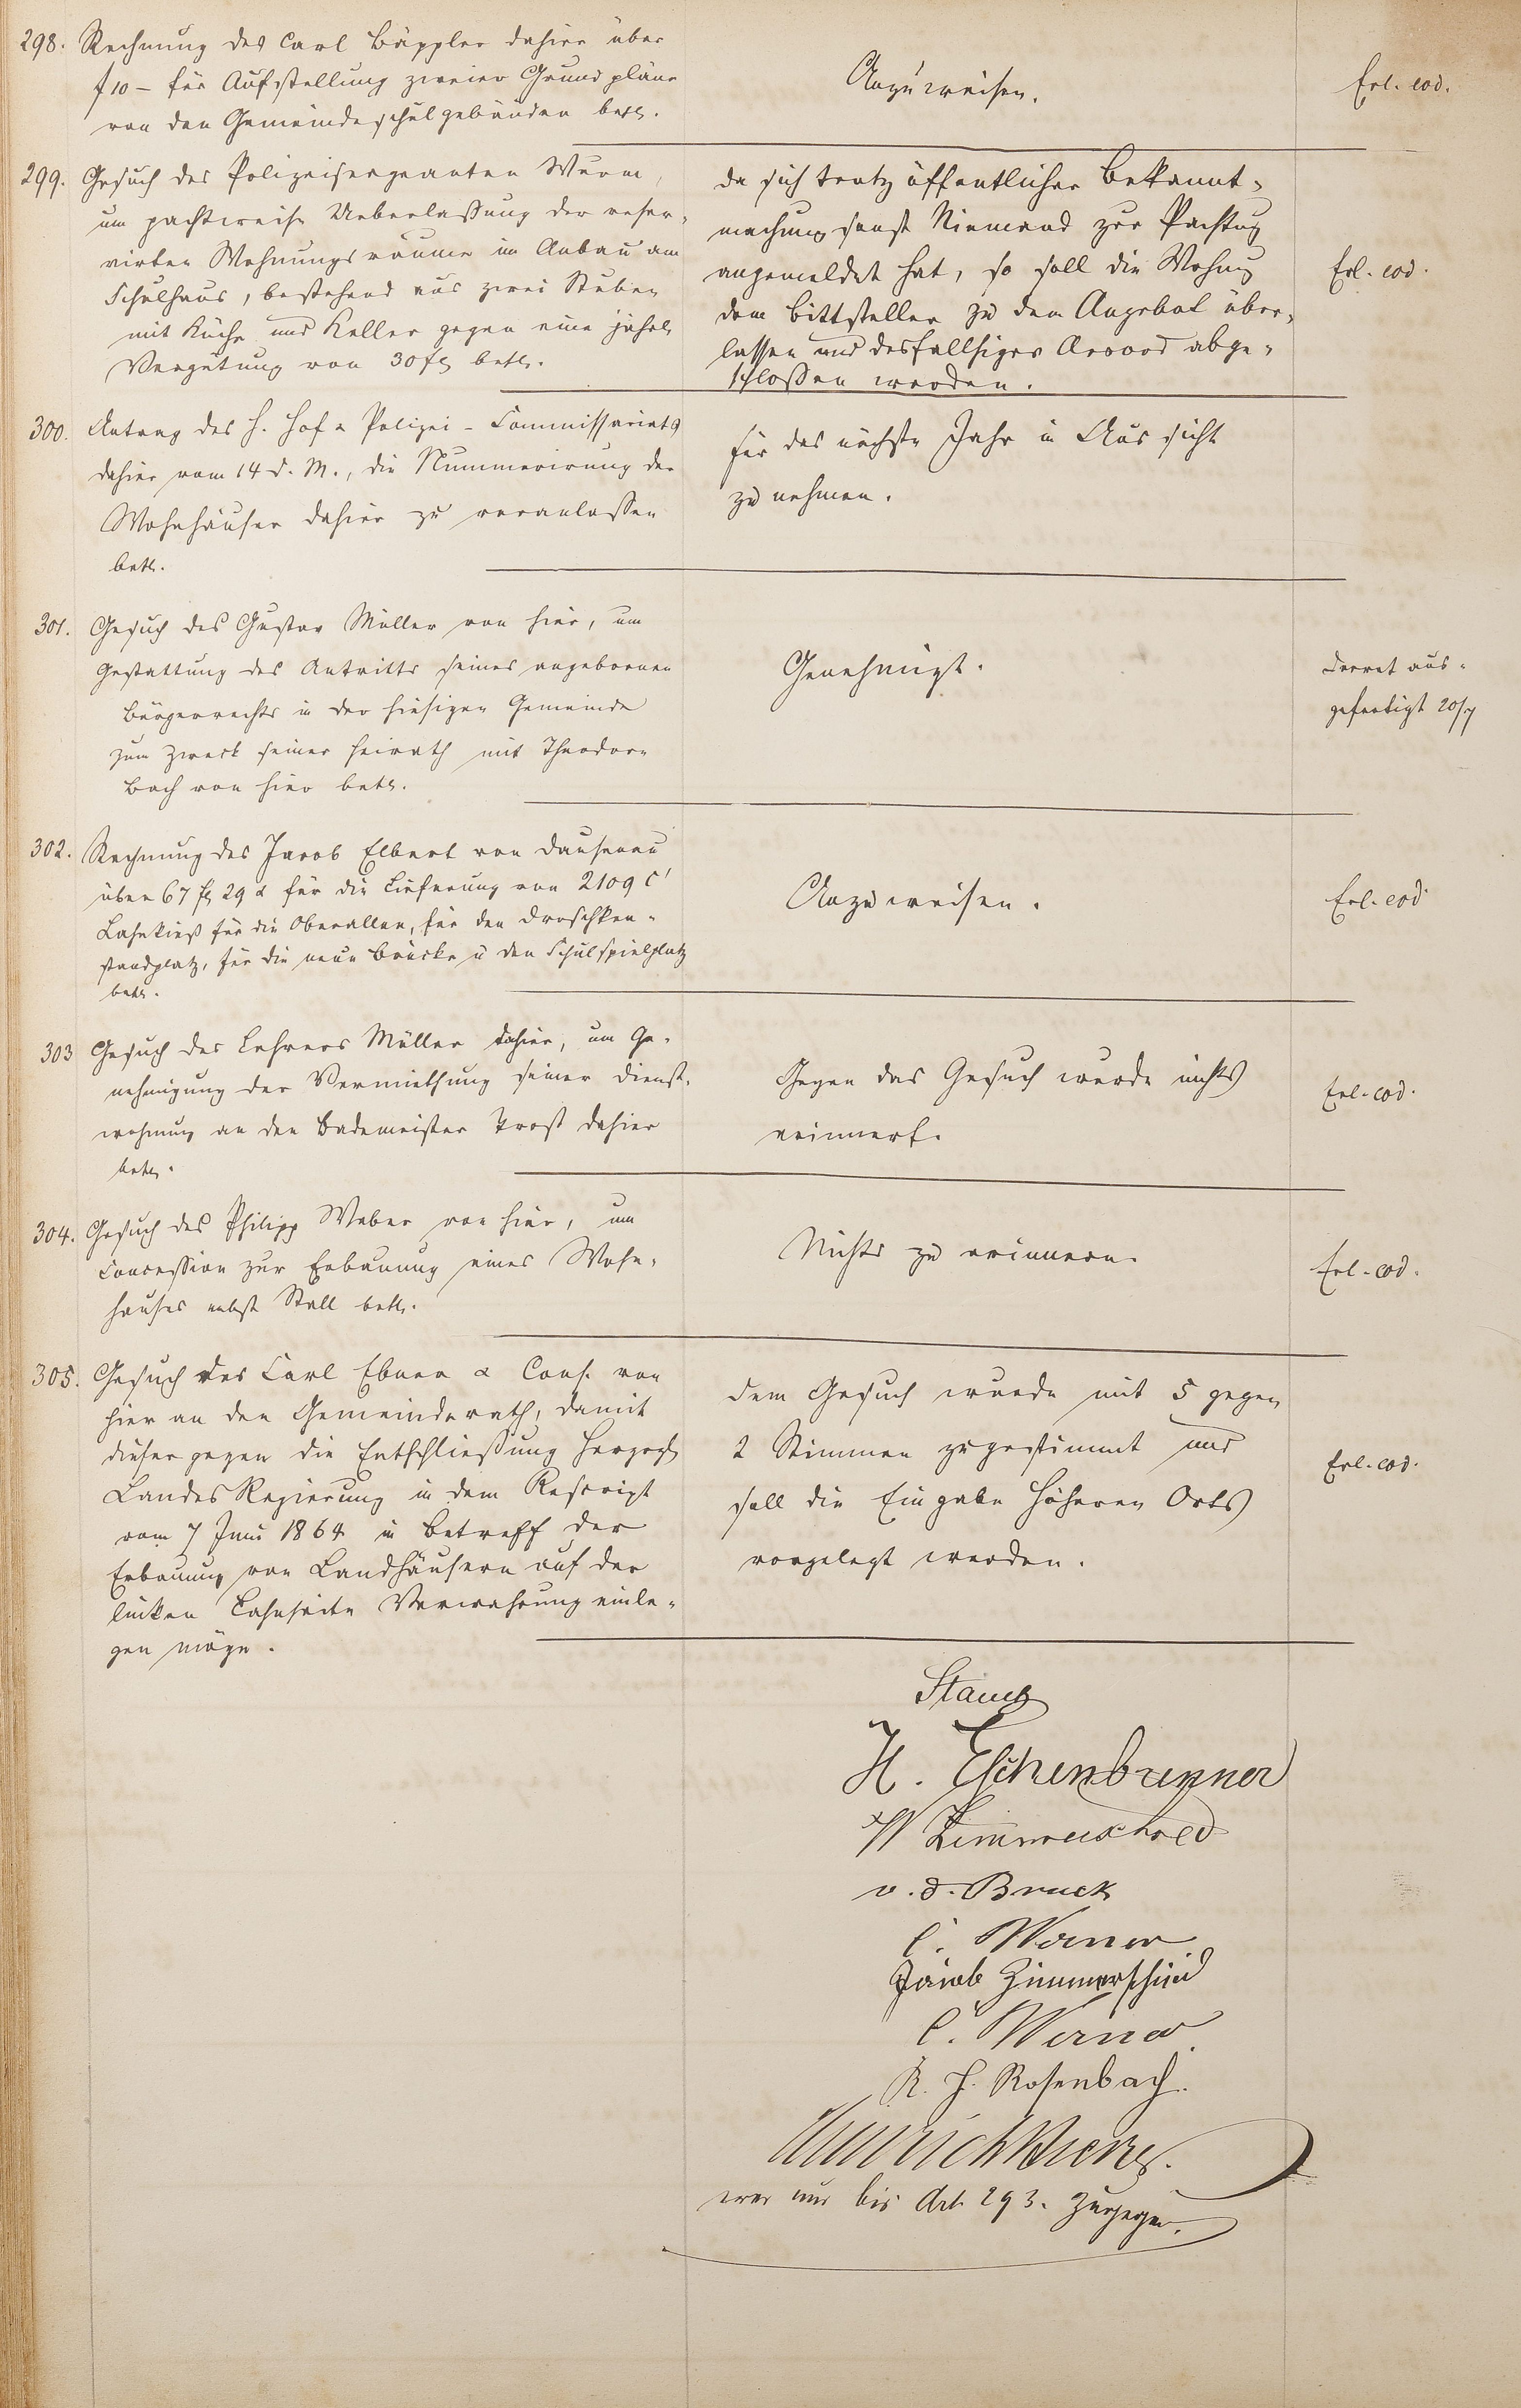 298. Rechnung des Carl Bäppler dahier über
f 10 – für Aufstellung zweier Grundpläne
von den Gemeindeschulgebäuden betr.
Anzuweisen.
Erl. eod.
299. Gesuch des Polizeisergeanten Wurm,
um pachtweise Ueberlaßung der reser-
virten Wohnungsräume im Anbau am
Schulhaus, bestehend aus zwei Stuben
mit Küche und Keller gegen eine jährl.
Vergütung von 30 fl betr.
da sich trotz öffentlicher Bekannt-
machung sonst Niemand zur Pachtung
angemeldet hat, so soll die Wohnung
dem Bittsteller zu dem Angebot über-
lassen und desfallsiger Accord abge-
schloßen werden.
Erl. eod.
300. Antrag des H. Hof & Polizei-Commissariats
dahier vom 14 d. M., die Nummerirung der
Wohnhäuser dahier zu veranlaßen
betr.
für das nächste Jahr in Aussicht
zu nehmen.
301. Gesuch des Gustav Müller von hier, um
Gestattung des Antritts seines angebornen
Bürgerrechts in der hiesigen Gemeinde
zum Zweck seiner Heirath mit Theodore
Bach von hier betr.
Genehmigt.
Decret aus-
gefertigt 20/7
302. Rechnung des Jacob Elbert von Dausenau
über 67 fl 29 x für die Lieferung von 2109 C'
Lahnkieß für die Oberallee, für den Droschken-
standplatz, für die neue Brücke u den Schulspielplatz
betr.
Anzuweisen.
Erl. eod.
303 Gesuch des Lehrers Müller dahier, um Ge-
nehmigung der Vermiethung seiner Dienst-
wohnung an den Bademeister Prost dahier
betr.
Gegen das Gesuch wurde nichts
erinnert.
Erl. eod.
304. Gesuch des Philipp Weber von hier, um
Concession zur Erbauung eines Wohn-
hauses nebst Stall betr.
Nichts zu erinnern.
Erl. eod.
305. Gesuch des Carl Ebner & Cons. von
hier an den Gemeinderath, damit
dieser gegen die Entschließung Herzogl.
Landes Regierung in dem Rescript
vom 7 Juni 1864 in Betreff der
Erbauung von Landhäusern auf der
linken Lahnseite Verwahrung einle-
gen möge.
Dem Gesuch wurde mit 5 gegen
2 Stimmen zugestimmt und
soll die Eingabe höheren Orts
vorgelegt werden.
Erl. eod.
H. Eschenbrenner
v. d. Bruck
C. Werner
Jacob Zimmerschied
C. Werner
R. H. Rosenbach.
war nur bis Art. 293. zugegen.